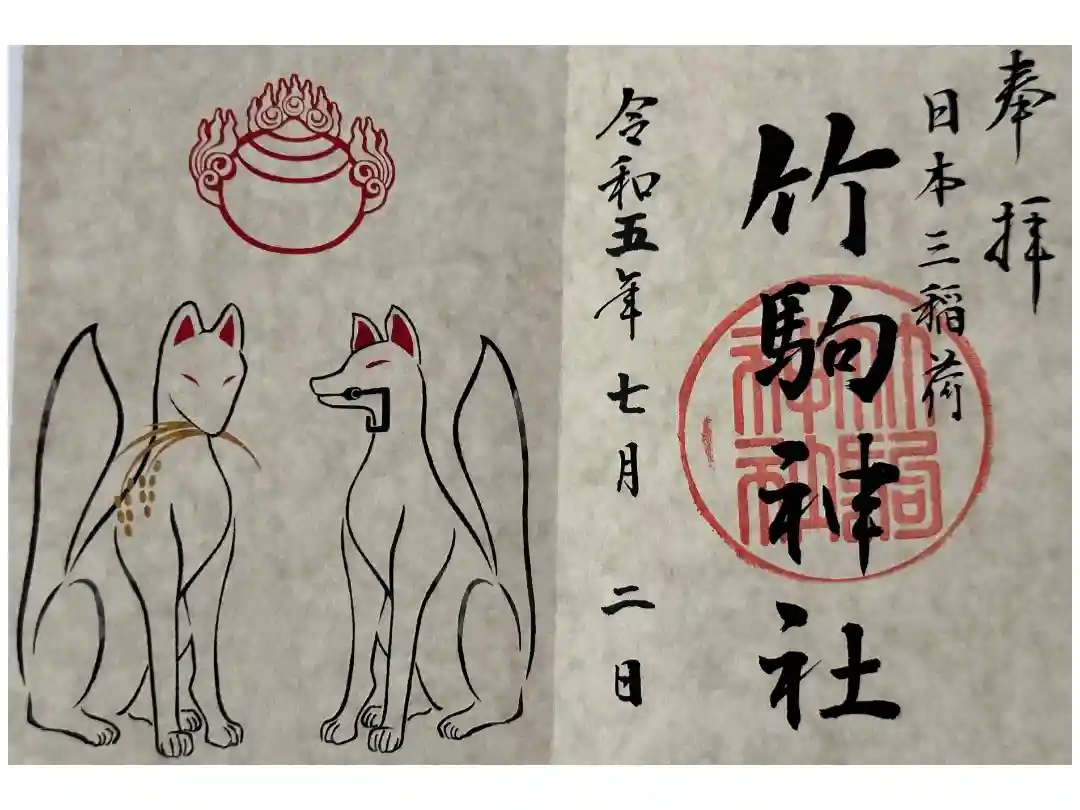 奉拝
日本三稲荷
竹駒神社
令和五年 七月 二日